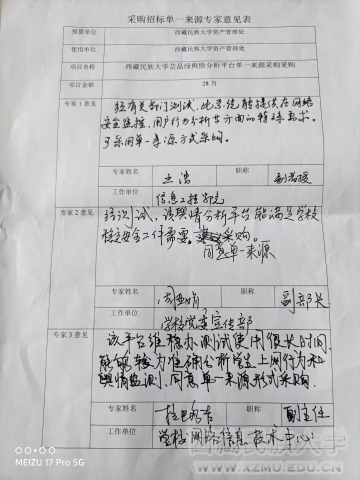 采购招标单一来源专家意见表
预算单位 西藏民族大学资产管理处
使用单位 西藏民族大学资产管理处
项目名称 西藏民族大学芸品绿舆情分析平台单一来源采购采购
项目金额 28万
专家1意见 经有关部门测试,此系统能提供在网络
安全监控、用户行为分析等方面的特殊要求。
可采用单一来源方式采购。
专家姓名 职称 副教授
工作单位 信息工程学院
专家2意见 经测试,该舆情分析平台能满足学校
校园安全工作需要。建议采购。
同意单一来源
专家姓名 职称 副部长
工作单位 学校党委宣传部
专家3意见 该平台维稳办测试使用很长时间,
能够较为准确分析学生上网行为和
舆情监测,同意单一来源形式采购.
专家姓名 职称 副主任
工作单位 学校网络信息技术中心
MEIZU 17 Pro 5G
西藏民族大学
WWW.XZMU.EDU.CN